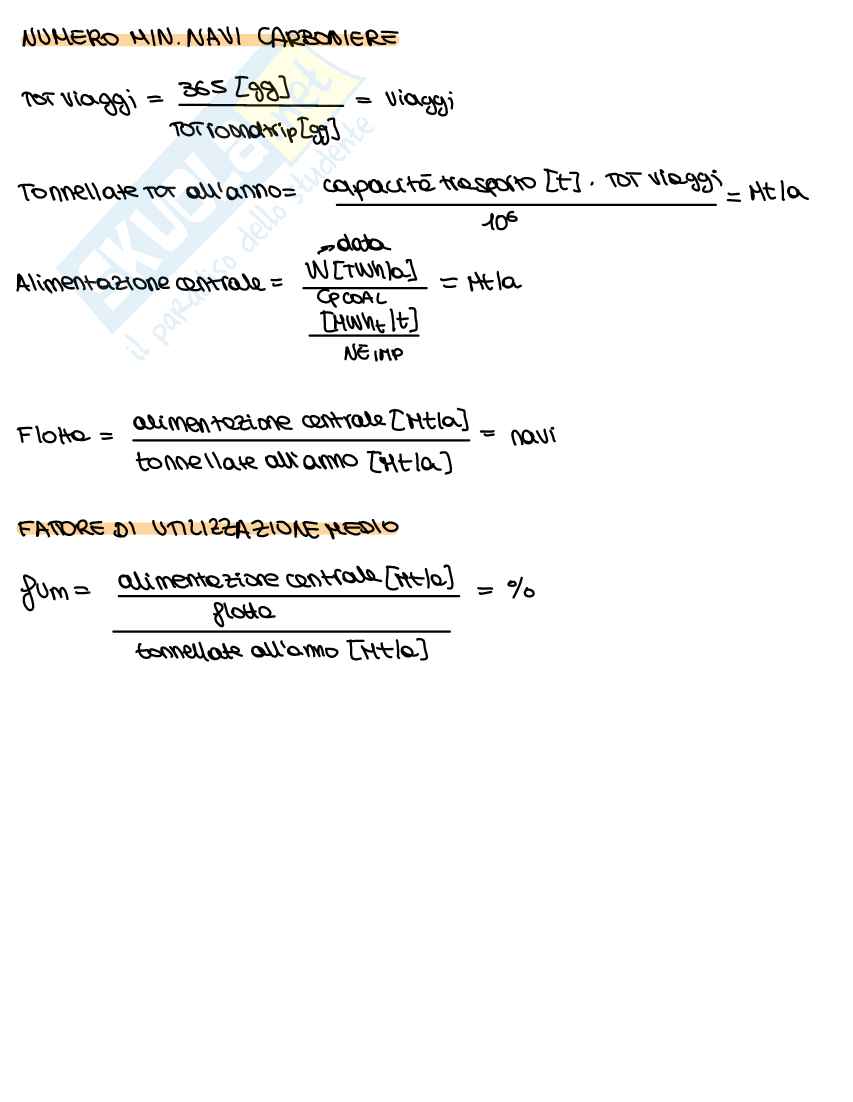 NUMERO MIN. NAVI CARBONIERE
TOT viaggi = 365 [gg] / TOT roundtrip [gg] = viaggi
Tonnellate TOT all'anno = capacità trasporto [t] · TOT viaggi / 10⁶ = Mt/a
→ data
Alimentazione centrale = W [TWh/a] / CPCOAL [MWht/t] / NE IMP = Mt/a
Flotta = alimentazione centrale [Mt/a] / tonnellate all'anno [Mt/a] = navi
FATTORE DI UTILIZZAZIONE MEDIO
fUm = alimentazione centrale [Mt/a] / flotta / tonnellate all'anno [Mt/a] = %
SKUOLA.net
il paradiso dello studente